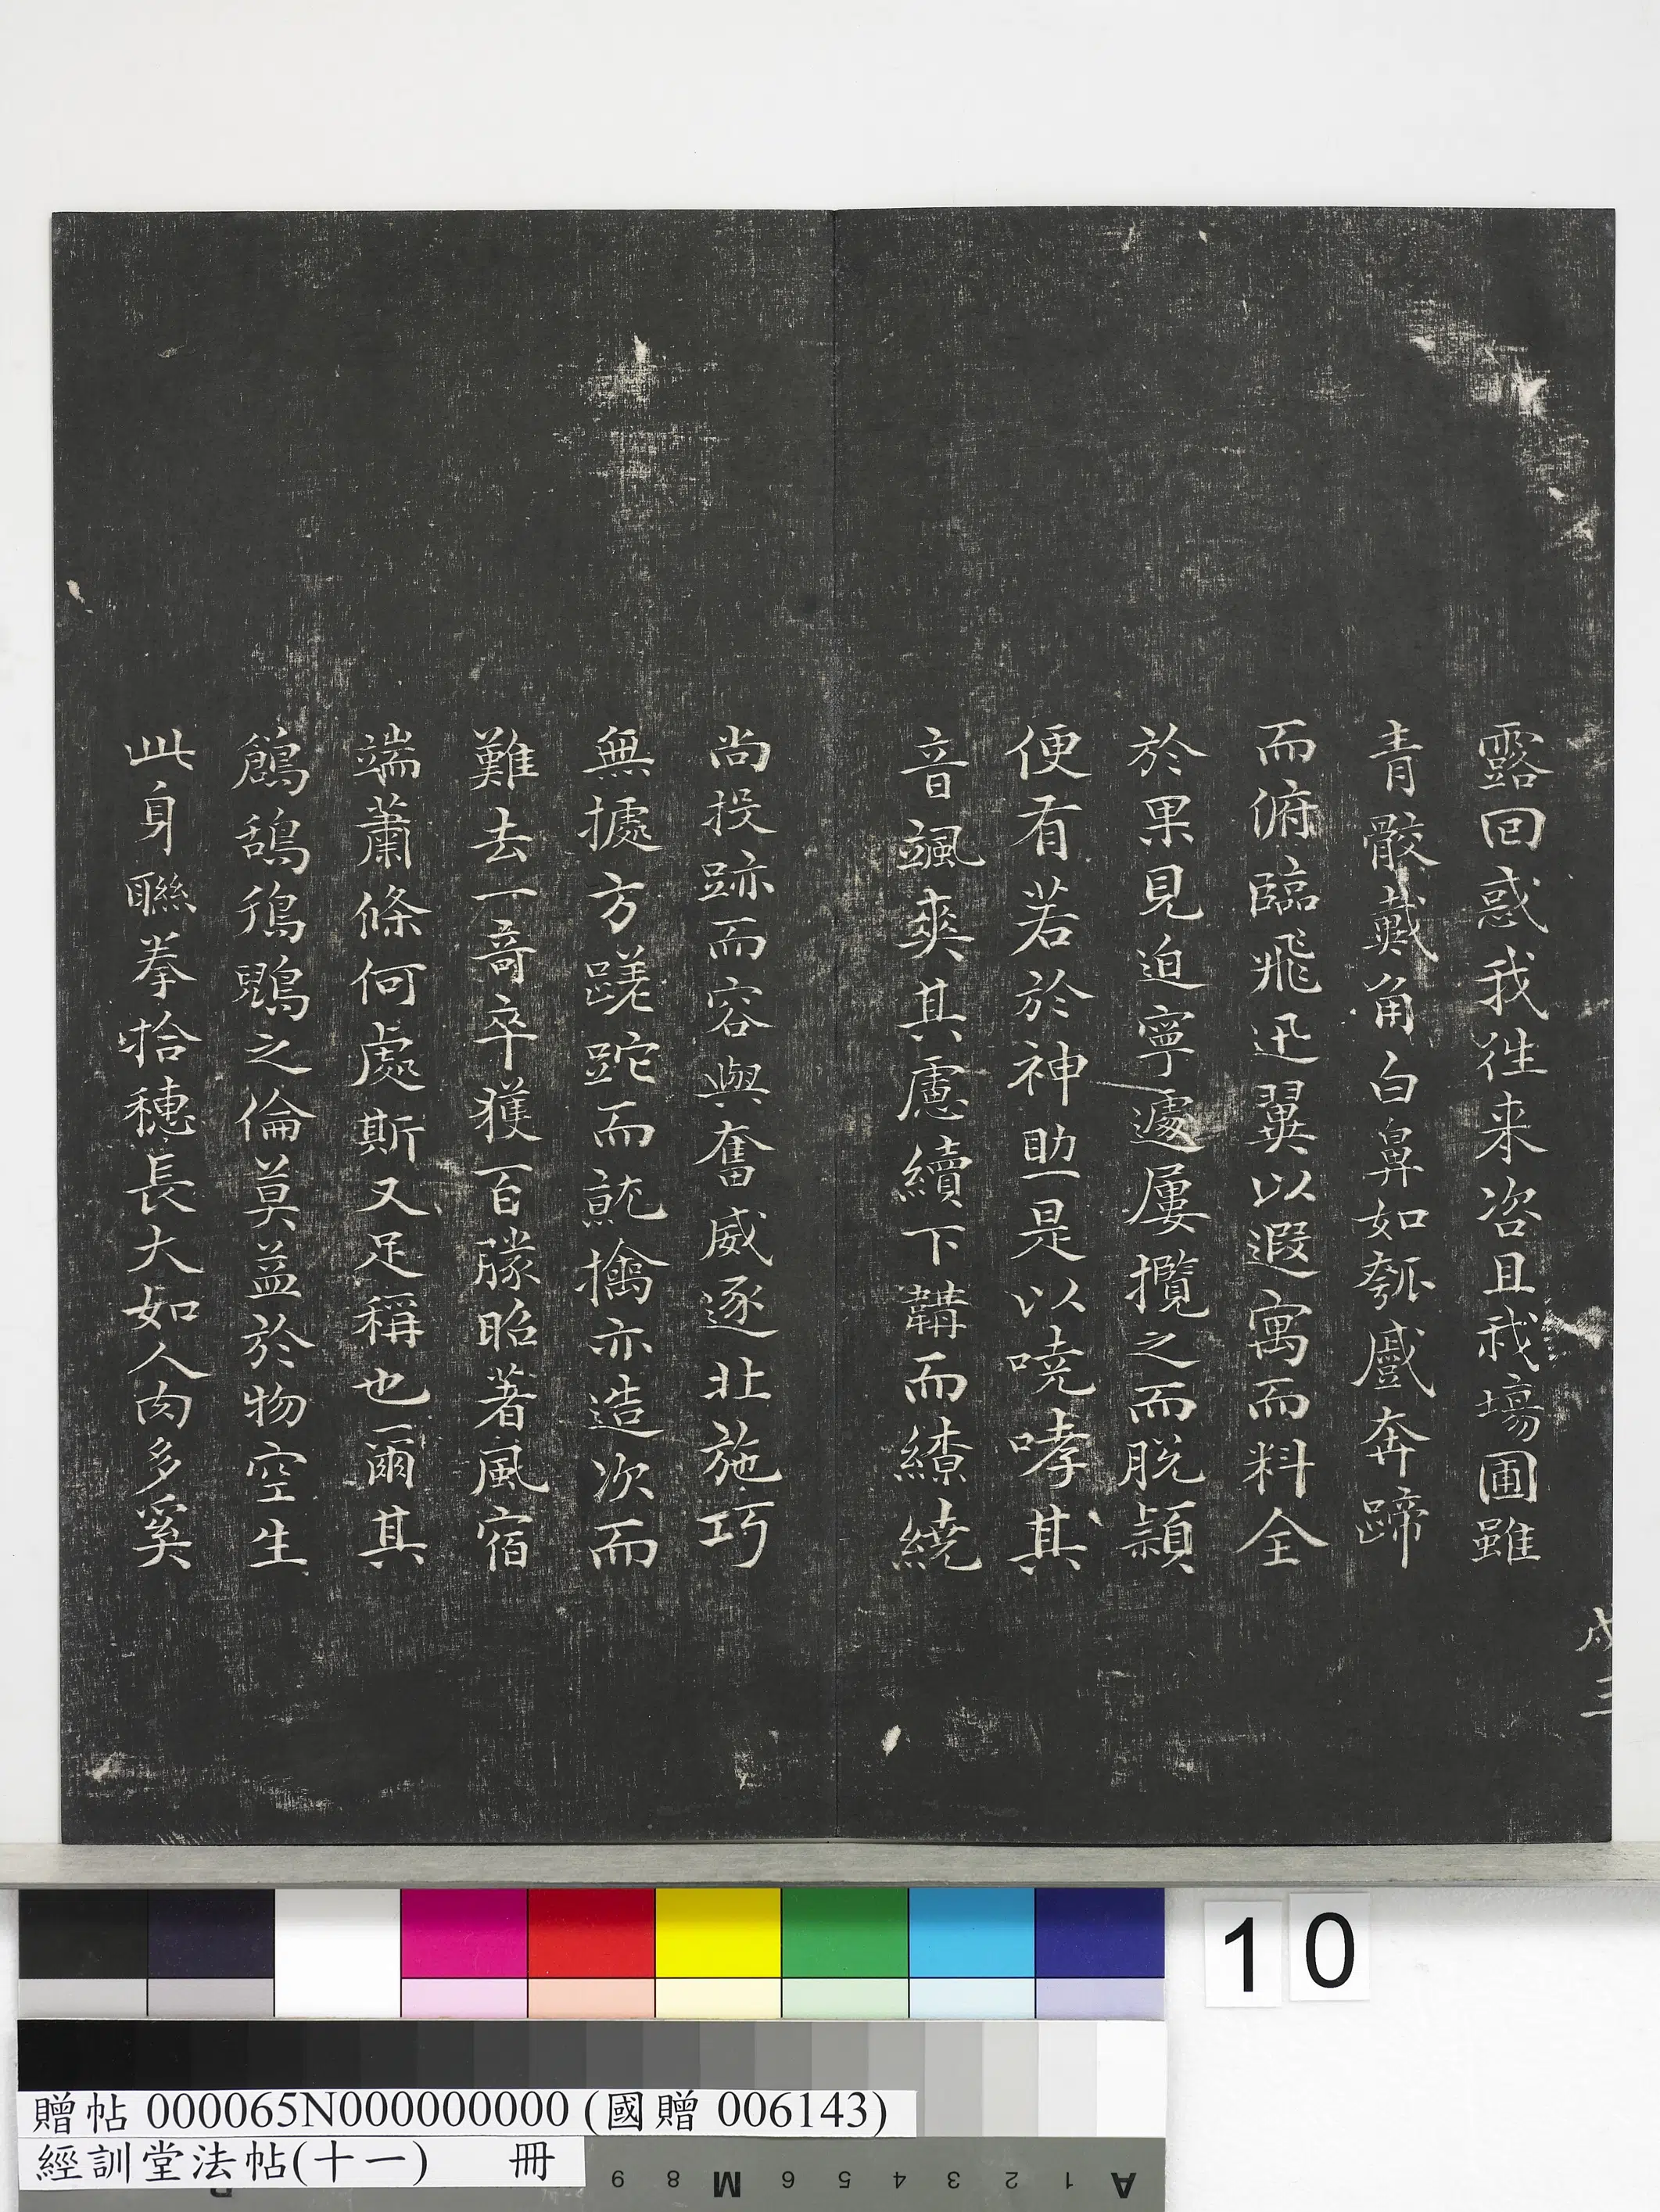 露回惑我往来咨且我場圃雖
青骹戴角白鼻如瓠蹙奔蹄
而俯臨飛迅翼以遐寓而料全
於果見迫寧遽屢攬之而脱穎
便有若於神助是以嘵哮其
音颯爽其慮續下韝而繚繞
尚投跡而容與奮威逐北施巧
無據方蹉跎而就擒亦造次而
難去一奇卒獲百勝昭著夙宿
端蕭條何處斯又足稱也爾其
鶬鴰鴇鶂之倫莫益於物空生
此身聯拳拾穗長大如人肉多奚
戍三
10
贈帖 000065N000000000 (國贈 006143)
經訓堂法帖(十一) 冊
A 1 2 3 4 5 6 M 8 9